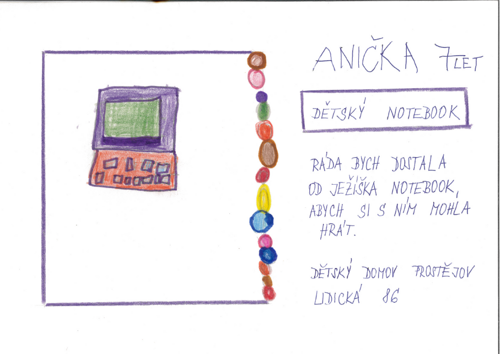 ANIČKA 7LET
DĚTSKÝ NOTEBOOK
RÁDA BYCH DOSTALA
OD JEŽÍŠKA NOTEBOOK,
ABYCH SI S NÍM MOHLA
HRÁT.
DĚTSKÝ DOMOV PROSTĚJOV
LIDICKÁ 86